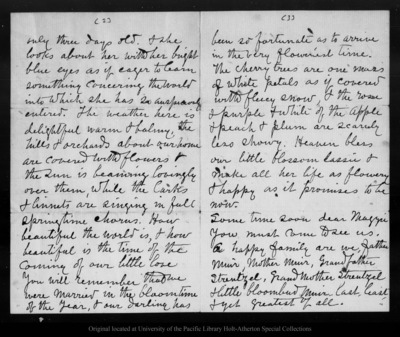 (2)
only three days old. & she
looks about her with her bright
blue eyes as if eager to learn
something concerning the world
into which she has so auspiciously
entered. The weather here is
delightful warm & balmy, the
hills & orchards about our home
are covered with flowers &
the sun is beaming lovingly
over them, while the larks
& linnets are singing in full
springtime chorus. How
beautiful the world is, & how
beautiful is the time of the
coming of our little love
You will remember that we
were married in the bloomtime
of the year, & our darling has
(3)
been so fortunate as to arrive
in the very floweriest time.
The cherry trees are one mass
of white petals as if covered
with fleecy snow, & the rose
& purple & white of the apple
& peach & plum are scarcely
less showy. Heaven bless
our little blossom lassie &
make all her life as flowery
& happy as it promises to be
now.
Some time soon dear Maggie
you must come & see us.
A happy family are we, Father
Muir, Mother Muir, Grandfather
Strentzel, Grand Mother Strentzel
& little bloombud Muir last, least
& yet greatest of all.
Original located at University of the Pacific Library Holt-Atherton Special Collections